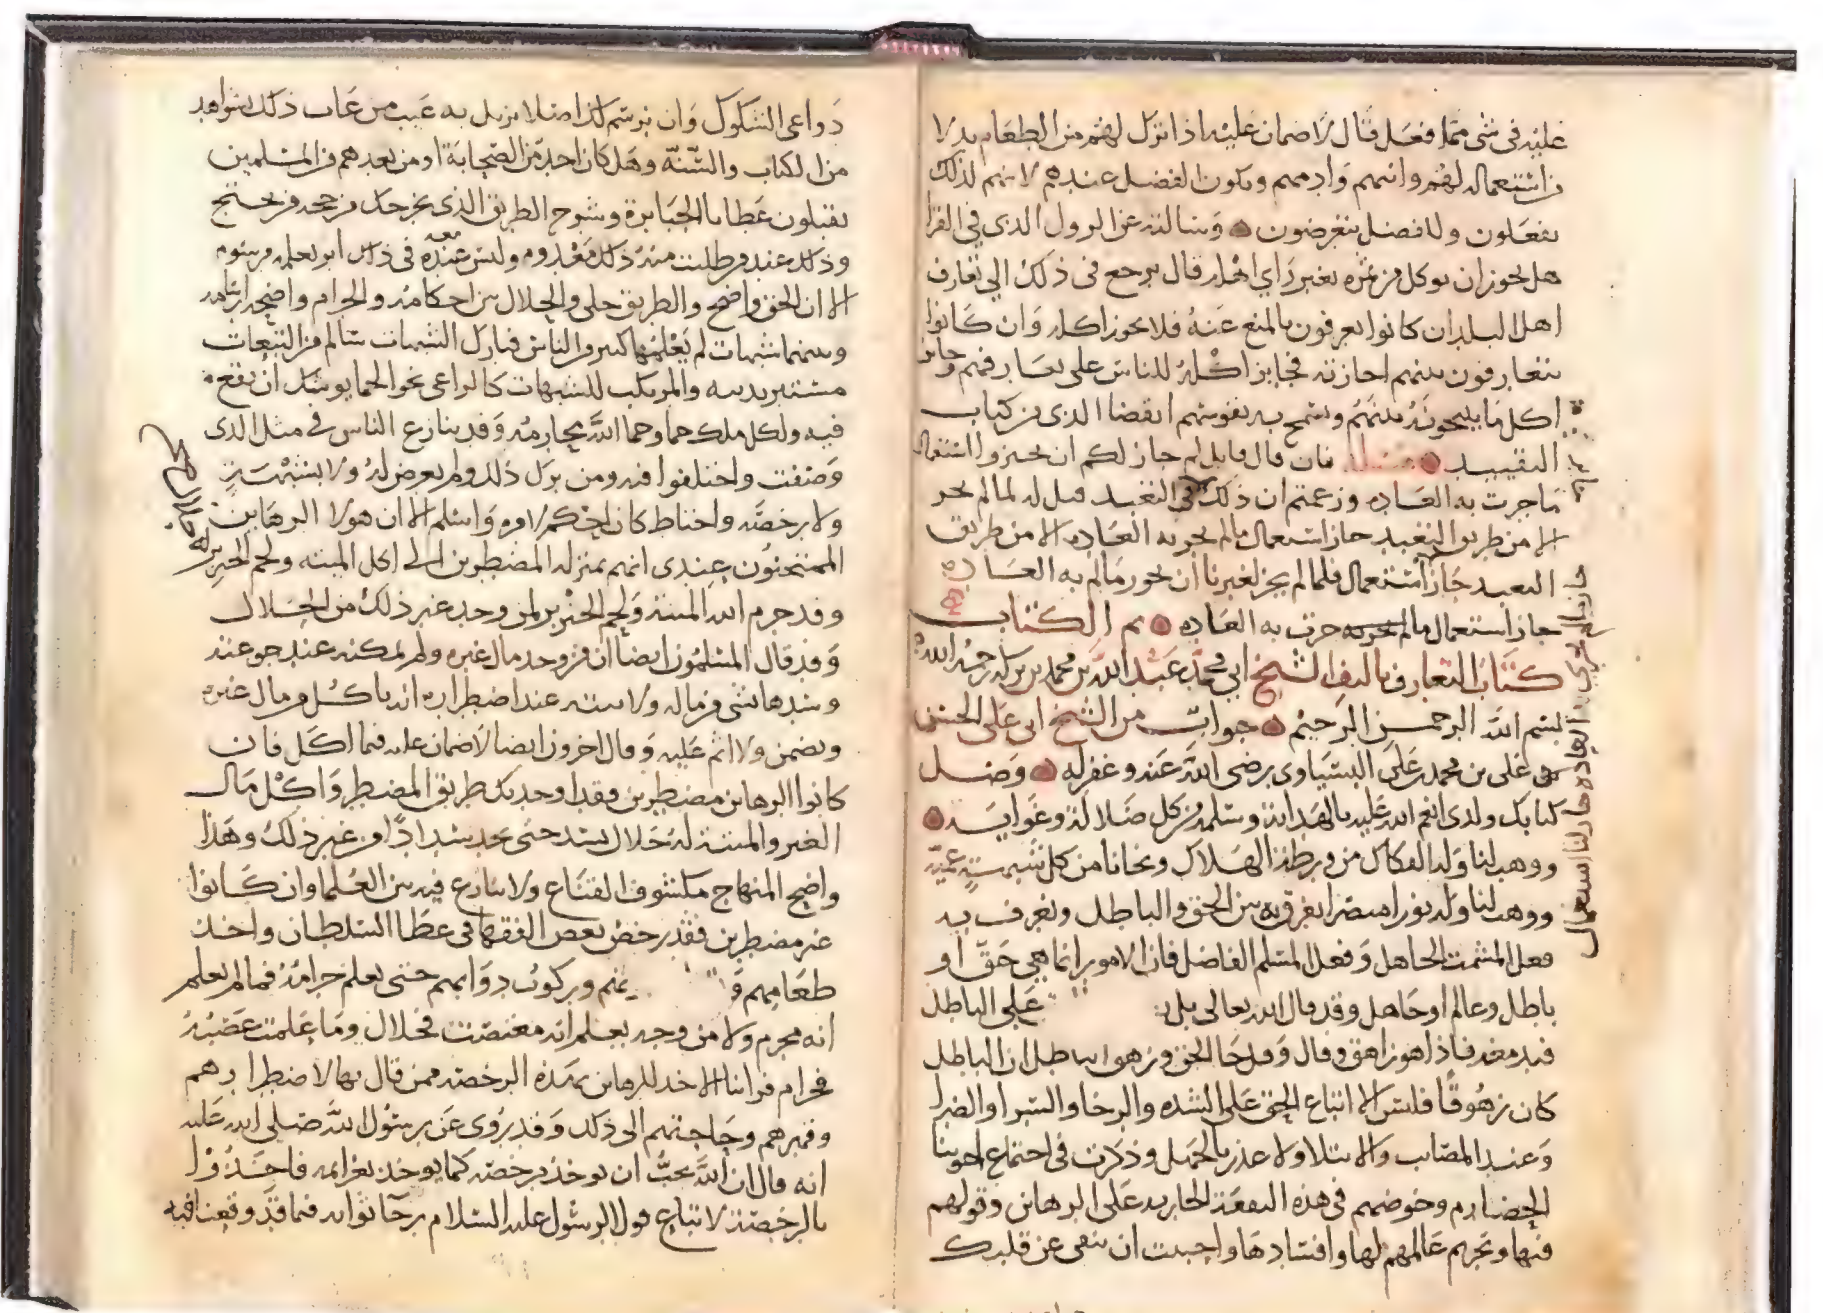 عليه في شي مما فعل قال لا ضمان عليه اذا ترك لهم من الطعام بدلا
من استعماله لهم وانهم وادمهم ويكون الفضل عندهم لانهم لذلك
يفعلون ولا فضل يتعرضون وسالته عن الرول الذي في القرا
هل يجوز ان يوكل من ثمره بغير راي اهله قال يرجع في ذلك الي تعارف
اهل البلد ان كانوا يعرفون بالمنع عنه فلا يجوز اكله وان كانوا
يتعارفون بينهم اجازته فجايز اكله للناس على تعارفهم وجايز
اكل ما يبيحونه بينهم وتسمح به نفوسهم انقضا الذي من كتاب
التقييد مسئلة فان قال قايل لم جاز لكم ان تجيزوا استعمال
ما جرت به العاده وزعمتم ان ذلك في التعبد قيل له لما لم يجز
الا من طريق التعبد جاز استعمال ما لم تجر به العاده الا من طريق
التعبد جاز استعمال فلما لم يجز لغيرنا ان يجوز ما لم به العاده
جاز استعمال ما جرت به العاده تم الكتاب
كتاب التعارف تاليف الشيخ ابي محمد عبد الله بن محمد بن بركة رحمه الله
بسم الله الرحمن الرحيم جواب من الشيخ ابي علي الحسن
علي بن محمد بن علي البسياوي رضي الله عنه وغفر له وصل
كتابك ولدي انعم الله عليه بالهدايه وسلمه من كل ضلالة وغوايه
ووهب لنا وله الفكاك من ورطة الهلاك ونجانا من كل شبهة عميه
ووهب لنا وله نورا مبصرا يفرق به بين الحق والباطل ويعرف به
فعل الجاهل وفعل المسلم الفاضل فان الامور انما هي حق او
باطل وعالم او جاهل وقد قال الله تعالى بل على الباطل
فيدمغه فاذا هو زاهق وقال وقل جا الحق وزهق الباطل ان الباطل
كان زهوقا فليس الا اتباع الحق على الشده والرخا والسرا والضرا
وعند المصائب والابتلا ولا عذر بالجهل وذكرت في اجتماع اخوتنا
الحضارم وخوضهم في هذه البقعة الجاريه على الرهاين وقولهم
فيها وتحريم عالمهم لها وافسادها واحببت ان ينفى عن قلبك
دواعي الشكوك وان نرسم لك اصلا نزيل به عيب من عاب ذلك بشواهد
من الكتاب والسنة وهل كان احد من الصحابة او من بعدهم من المسلمين
يقبلون عطايا الجبابرة وشرح الطريق الذي يخرجك من حجه من يحتج
وذلك عند من طلبت منه ذلك معدوم وليس عنده في ذلك اثر يعلمه مرسوم
الا ان الحق واضح والطريق جلي والحلال بين احكامه والحرام واضحه اثامه
وبينهما شبهات لم يعلمها كثير من الناس فتارك الشبهات سالم من التبعات
مستبر بدينه والمرتكب للشبهات كالراعي نحو الحما يوشك ان يقع
فيه ولكل ملك حما وحما الله محارمه وقد ينازع الناس في مثل الذي
وصفت واختلفوا فيه ومن ترك ذلك ولم يعرض له ولا بشبهة
ولا برخصه واحتاط كان احكم لامره واسلم الا ان هولا الرهاين
الممتحنون عندي انهم بمنزلة المضطرين الى اكل الميته ولحم الخنزير
وقد حرم الله الميتة ولحم الخنزير لمن وجد غير ذلك من الحلال
وقد قال المسلمون ايضا ان من وجد مال غيره ولم يمكنه عند جوعته
وشدها شي من ماله ولا ميته عند اضطراره انه ياكل من مال غيره
ويضمن ولا اثم عليه وقال اخرون ايضا لا ضمان عليه فيما اكل فان
كانوا الرهاين مضطرين فقد اوجدتك طريق المضطر واكل مال
الغير والميتة له حلال يسد حتى يجد سدادا من غير ذلك وهذا
واضح المنهاج مكشوف القناع ولا تنازع فيه بين العلما وان كانوا
غير مضطرين فقد رخص بعض الفقها في عطا السلطان واخذ
طعامهم وركوب دوابهم حتى يعلم حرامه فما لم يعلم
انه محرم ولا من وجه يعلم انه مغتصب فحلال وما علمت غصبه
فحرام فراينا الاخذ للرهاين بهذه الرخصه ممن قال بها لاضطرارهم
وقهرهم وحاجتهم الى ذلك وقد يروى عن رسول الله صلى الله عليه
انه قال ان الله يحب ان يوخذ برخصه كما يوخذ بعزايمه فاخذوا
بالرخصة لاتباع قول الرسول عليه السلام رجا ثوابه فما قد وقعنا فيه